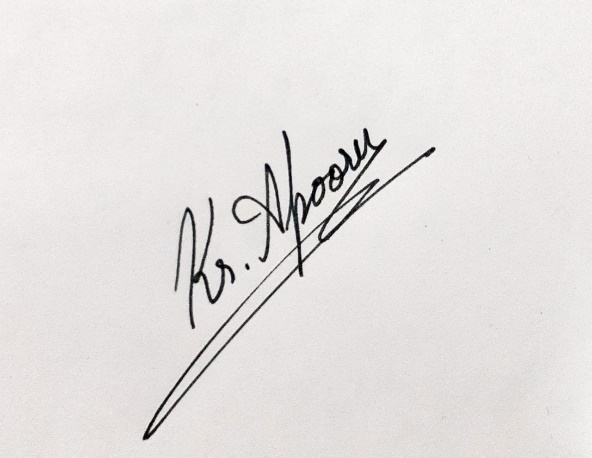 Kr. Apoorv